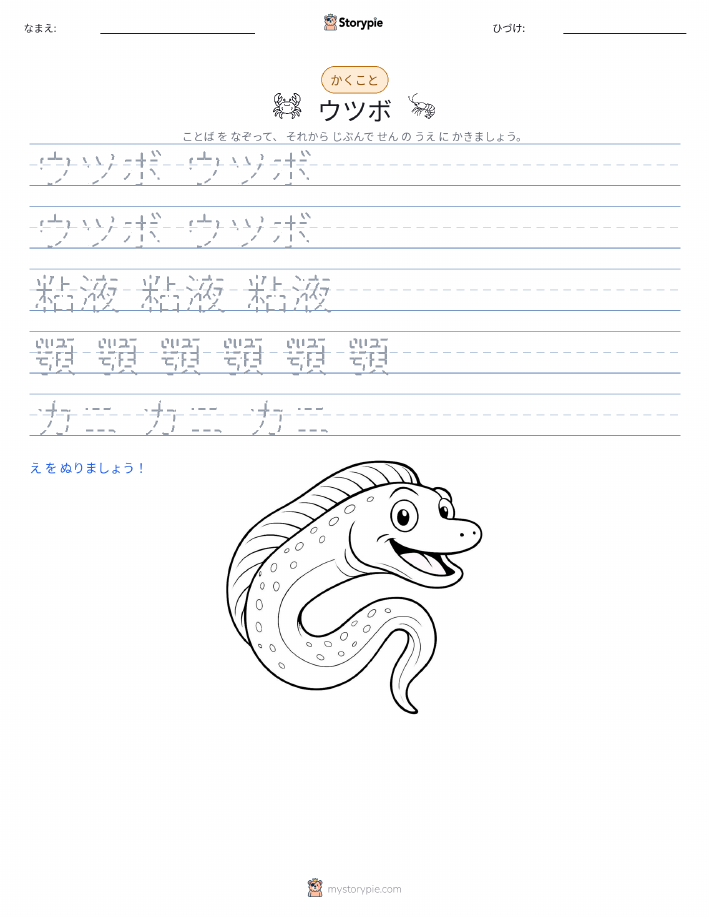 なまえ:
Storypie
ひづけ:
かくこと
ウツボ
ことば を なぞって、 それから じぶんで せん の うえ に かきましょう。
ウツボ ウツボ
ウツボ ウツボ
粘液 粘液 粘液
顎 顎 顎 顎 顎 顎
カニ カニ カニ
え を ぬりましょう！
mystorypie.com